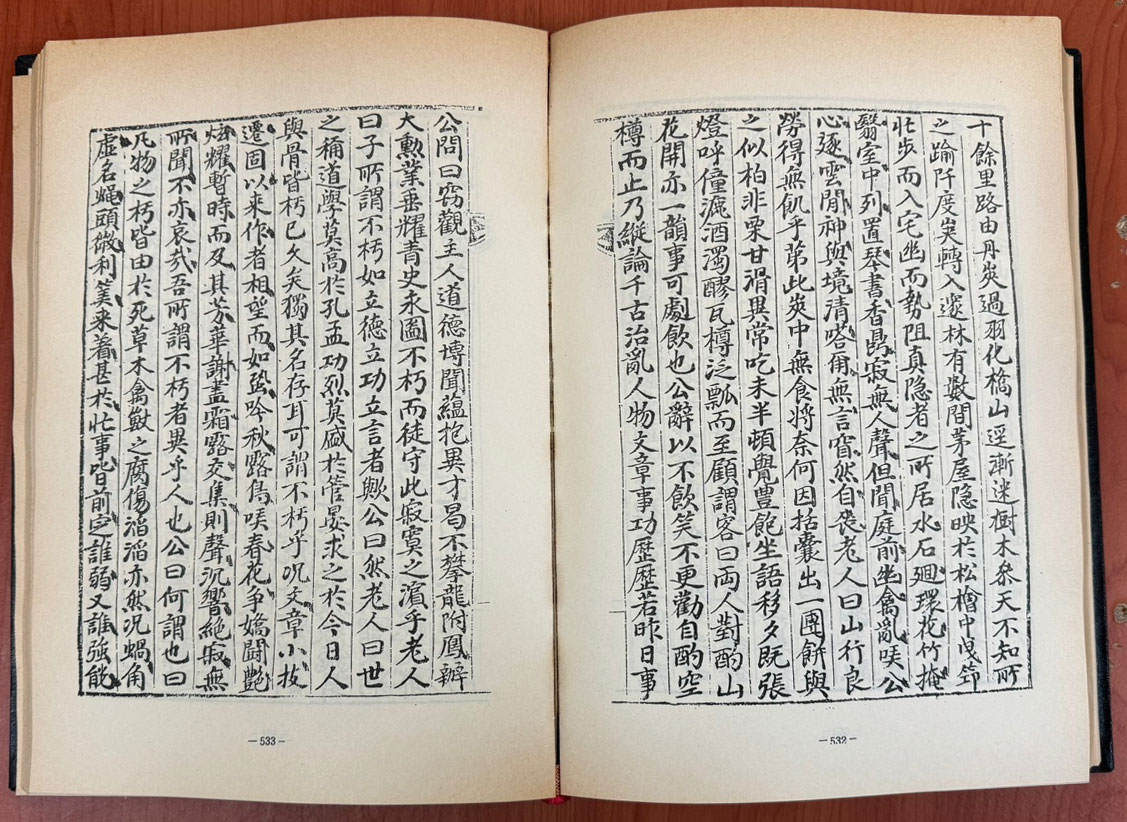 十餘里路由丹峽過羽化橋山逕漸迷樹木參天不知所
之踰阡度峽轉入邃林有數間茅屋隐映於松檜中曳筇
忙步而入宅幽而勢阻真隐者之所居水石廻環花竹掩
翳室中列置琴書香鼎寂無人聲但聞庭前幽禽亂啼公
心逐雲閒神與境清嗒焉無言窅然自喪老人曰山行良
勞得無飢乎第此峽中無食將奈何因括囊出一團餅與
之似柏非栗甘滑異常吃未半頓覺豊飽坐語移夕既張
燈呼僮漉酒濁醪瓦樽泛瓢而至顧謂客曰両人對酌山
花開亦一韻事可劇飲也公辭以不飲笑不更勸自酌空
樽而止乃縱論千古治亂人物文章事功歷歷若昨日事
－532－
公問曰窃觀主人道德博聞蘊抱異才曷不攀龍附鳳辦
大勳業垂耀青史永圖不朽而徒守此寂寞之濱乎老人
曰子所謂不朽如立德立功立言者歟公曰然老人曰世
之稱道學莫高於孔孟功烈莫盛於管晏求之於今日人
與骨皆朽已久矣獨其名存耳可謂不朽乎況文章小技
遷固以來作者相望而如蛩吟秋露鳥啼春花争嬌闘艶
炫耀暫時而及其芳華謝盡霜露交集則聲沉響絶寂無
所聞不亦哀哉吾所謂不朽者異乎人也公曰何謂也曰
凡物之朽皆由於死草木禽獸之腐傷滔滔亦然況蝸角
虛名蝇頭微利筭来着甚於忙事皆前定誰弱又誰強能
－533－